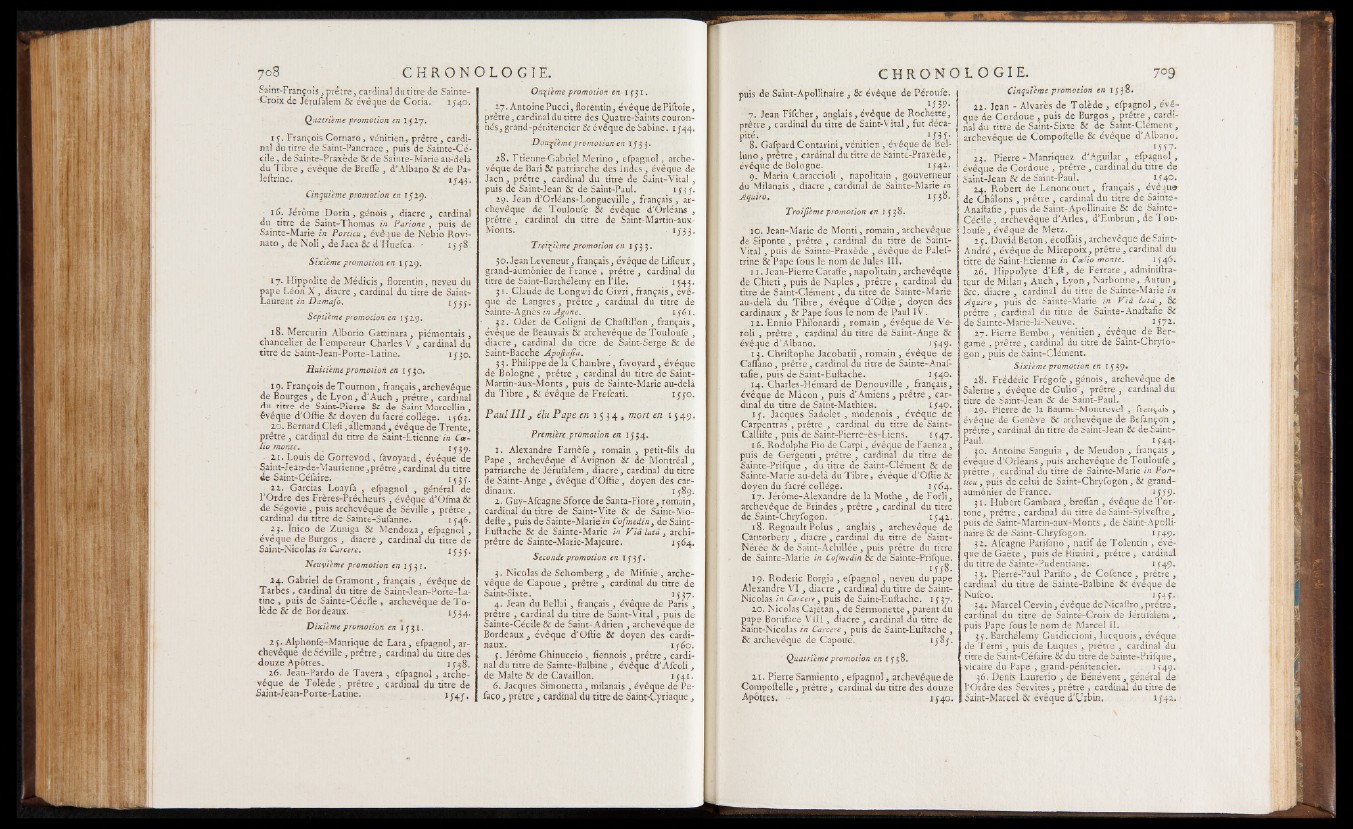 708 CHRONOLOGIE.
Saint-François, prêtre, cardinal du titre de Sainte-
Croix de Jérusalem & évêque de Coria. 1540.
Quatrième promotion en 1527.
15. François Cornaro, vénitien, prêtre, cardi-
nal du titre de Saint-Pancrace, puis de Sainte-Cé-
cile, de Sainte-Praxède & de Sainte-Marie au-delà
du Tibre, évêque de Bresse, d'Albano & de Pa-
lestrine. 1543.
Cinquième promotion en 1529.
16. Jérôme Doria, génois, diacre, cardinal
du titre de Saint-Thomas in Parione, puis de
Sainte-Marie in Portica, évêque de Nebio Rovi-
nato, de Noli, de Jaca & d'Huesca. 1558
Sixième promotion en 1529.
17. Hippolite de Médicis, florentin, neveu du
pape Léon X, diacre, cardinal du titre de Saint-
Laurent in Damaso. 1555.
Septième promotion en 1529.
18. Mercurin Alborio Gattinara, piémontais,
chancelier de l'empereur Charles V, cardinal du
titre de Saint-Jean-Porte-Latine. 1530.
Huitième promotion en 1530.
19. François de Tournon, français, archevêque
de Bourges, de Lyon, d'Auch, prêtre, cardinal
du titre de Saint-Pierre & de Saint Marcellin,
évêque d'Ostie & doyen du sacré collège. 1562.
20. Bernard Clesi, allemand, évêque de Trente,
prêtre, cardinal du titre de Saint-Etienne in Cœ-
lio monte. 1539.
21. Louis de Gorrevod, savoyard, évêque de
Saint-Jean-de-Maurienne, prêtre, cardinal du titre
de Saint-Césaire. 1535.
22. Garcias Loaysa, espagnol, général de
l'Ordre des Frères-Prêcheurs, évêque d'Osma &
de Ségovie, puis archevêque de Séville, prêtre,
cardinal du titre de Sainte-Susanne. 1546.
23. Inico de Zuniga & Mendoza, espagnol,
évêque de Burgos, diacre, cardinal du titre de
Saint-Nicolas in Carcere. 1535.
Neuvième promotion en 1531.
24. Gabriel de Gramont, français, évêque de
Tarbes, cardinal du titre de Saint-Jean-Porte-La-
tine, puis de Sainte-Cécile, archevêque de To-
lède & de Bordeaux. 1534.
Dixième promotion en 1531.
25. Alphonse-Manrique de Lara, espagnol, ar-
chevêque de Séville, prêtre, cardinal du titre des
douze Apôtres. 1538.
26. Jean-Pardo de Tavera, espagnol, arche-
vêque de Tolède, prêtre, cardinal du titre de
Saint-Jean-Porte-Latine. 1545.
Onzième promotion en 1531.
27. Antoine Pucci, florentin, évêque de Pistoie,
prêtre, cardinal du titre des Quatre-Saints couron-
nés, grand-pénitencier & évêque de Sabine. 1544.
Douzième promotion en 1533.
28. Etienne Gabriel Merino, espagnol, arche-
vêque de Bari & patriarche des Indes, évêque de
Jaen, prêtre, cardinal du titre de Saint-Vital,
puis de Saint-Jean & de Saint-Paul. 1535.
29. Jean d'Orléans-Longueville, français, ar-
chevêque de Toulouse & évêque d'Orléans,
prêtre, cardinal du titre de Saint-Martin-aux-
Monts. 1533.
Treizième promotion en 1533.
30. Jean Leveneur, français, évêque de Lisieux,
grand-aumônier de France, prêtre, cardinal du
titre de Saint-Barthélemy en l'Ile. 1543.
31. Claude de Longwi de Givri, français, évê-
que de Langres, prêtre, cardinal du titre de
Sainte-Agnès in Agone. 1561.
32. Odet de Coligni de Chastillon, français,
évêque de Beauvais & archevêque de Toulouse,
diacre, cardinal du titre de Saint-Serge & de
Saint-Bacche Apostasia.
33. Philippe de la Chambre, savoyard, évêque
de Bologne, prêtre, cardinal du titre de Saint-
Martin-aux-Monts, puis de Sainte-Marie au-delà
du Tibre, & évêque de Frescati. 1550.
Paul III, élu Pape en 1534, mort en 1549.
Première promotion en 1534.
1. Alexandre Farnèse, romain, petit-fils du
Pape, archevêque d'Avignon & de Montréal,
patriarche de Jérusalem, diacre, cardinal du titre
de Saint-Ange, évêque d'Ostie, doyen des car-
dinaux. 1589.
2. Guy-Ascagne Sforce de Santa-Fiore, romain,
cardinal du titre de Saint-Vite & de Saint-Mo-
deste, puis de Sainte-Marie in Cosmedin, de Saint-
Eustache & de Sainte-Marie in Viâ latâ, archi-
prêtre de Sainte-Marie-Majeure. 1564.
Seconde promotion en 1535.
3. Nicolas de Schomberg, de Misnie, arche-
vêque de Capoue, prêtre, cardinal du titre de
Saint-Sixte. 1537.
4. Jean du Bellai, français, évêque de Paris,
prêtre, cardinal du titre de Saint-Vital, puis de
Sainte-Cécile & de Saint-Adrien, archevêque de
Bordeaux, évêque d'Ostie & doyen des cardi-
naux. 1560.
5. Jérôme Ghinuccio, siennois, prêtre, cardi-
nal du titre de Sainte-Balbine, évêque d'Ascoli,
de Malte & de Cavaillon. 1541.
6. Jacques Simonetta, milanais, évêque de Pe-
saco, prêtre, cardinal du titre de Saint-Cyriaque,
CHRONOLOGIE. 709
puis de Saint-Apollinaire, & évêque de Pérouse.
1539.
7. Jean Fischer, anglais, évêque de Rochestre,
prêtre, cardinal du titre de Saint-Vital, fut déca-
pité. 1535.
8. Gaspard Contarini, vénitien, évêque de Bel-
luno, prêtre, cardinal du titre de Sainte-Praxède,
évêque de Bologne. 1542.
9. Marin Caraccioli, napolitain, gouverneur
du Milanais, diacre, cardinal de Sainte-Marie in
Aquiro. 1538.
Troisième promotion en 1538.
10. Jean-Marie de Monti, romain, archevêque
de Siponte, prêtre, cardinal du titre de Saint-
Vital, puis de Sainte-Praxède, évêque de Pales-
trine & Pape sous le nom de Jules III.
11. Jean-Pierre Caraffe, napolitain, archevêque
de Chieti, puis de Naples, prêtre, cardinal du
titre de Saint-Clément, du titre de Sainte-Marie
au-delà du Tibre, évêque d'Ostie, doyen des
cardinaux, & Pape sous le nom de Paul IV.
12. Ennio Philonardi, romain, évêque de Ve-
roli, prêtre, cardinal du titre de Saint-Ange &
évêque d'Albano. 1549.
13. Christophe Jacobatii, romain, évêque de
Cassano, prêtre, cardinal du titre de Sainte-Anas-
tasie, puis de Saint-Eustache. 1540.
14. Charles-Hémard de Denouville, français,
évêque de Mâcon, puis d'Amiens, prêtre, car-
dinal du titre de Saint-Mathieu. 1540.
15. Jacques Sadolet, modenois, évêque de
Carpentras, prêtre, cardinal du titre de Saint-
Callixte, puis de Saint-Pierre-ès-Liens. 1547.
16. Rodolphe Pio de Carpi, évêque de Faenza,
puis de Gergenti, prêtre, cardinal du titre de
Sainte-Prisque, du titre de Saint-Clément & de
Sainte-Marie au-delà du Tibre, évêque d'Ostie &
doyen du sacré collège. 1564.
17. Jérôme-Alexandre de la Mothe, de Forli,
archevêque de Brindes, prêtre, cardinal du titre
de Saint-Chrysogon. 1542.
18. Regnault Polus, anglais, archevêque de
Cantorbery, diacre, cardinal du titre de Saint-
Nérée & de Saint-Achillée, puis prêtre du titre
de Sainte-Marie in Cosmedin & de Sainte-Prisque.
1558.
19. Roderic Borgia, espagnol, neveu du pape
Alexandre VI, diacre, cardinal du titre de Saint-
Nicolas in Carcere, puis de Saint-Eustache. 1537.
20. Nicolas Cajétan, de Sermonette, parent du
pape Boniface VIII, diacre, cardinal du titre de
Saint-Nicolas in Carcere, puis de Saint-Eustache,
& archevêque de Capoue. 1585.
Quatrième promotion en 1538.
21. Pierre Sarmiento, espagnol, archevêque de
Compostelle, prêtre, cardinal du titre des douze
Apôtres. 1540.
Cinquième promotion en 1538.
22. Jean-Alvarès de Tolède, espagnol, évê-
que de Cordoue, puis de Burgos, prêtre, cardi-
nal du titre de Saint-Sixte & de Saint-Clément,
archevêque de Compostelle & évêque d'Albano.
1557.
23. Pierre-Manriquez d'Aguilar, espagnol,
évêque de Cordoue, prêtre, cardinal du titre de
Saint-Jean & de Saint-Paul. 1540.
24. Robert de Lenoncourt, français, évêque
de Châlons, prêtre, cardinal du titre de Sainte-
Anastasie, puis de Saint-Apollinaire & de Sainte-
Cécile, archevêque d'Arles, d'Embrun, de Tou-
louse, évêque de Metz.
25. David Beton, écossais, archevêque de Saint-
André, évêque de Mirepoix, prêtre, cardinal du
titre de Saint-Etienne in Cœlio monte. 1546.
26. Hippolyte d'Est, de Ferrare, administra-
teur de Milan, Auch, Lyon, Narbonne, Autun,
&c. diacre, cardinal du titre de Sainte-Marie in
Aquiro, puis de Sainte-Marie in Viâ latâ, &
prêtre, cardinal du titre de Sainte-Anastasie &
de Sainte-Marie-la-Neuve. 1572.
27. Pierre Bembo, vénitien, évêque de Ber-
game, prêtre, cardinal du titre de Saint-Chryso-
gon, puis de Saint-Clément.
Sixième promotion en 1539.
28. Frédéric Frégose, génois, archevêque de
Salerne, évêque de Gulio, prêtre, cardinal du
titre de Saint-Jean & de Saint-Paul.
29. Pierre de la Baume-Montrevel, français,
évêque de Genève & archevêque de Besançon,
prêtre, cardinal du titre de Saint-Jean & de Saint-
Paul. 1544.
30. Antoine Sanguin, de Meudon, français,
évêque d'Orléans, puis archevêque de Toulouse,
prêtre, cardinal du titre de Sainte-Marie in Por-
tica, puis de celui de Saint-Chrysogon, & grand-
aumônier de France. 1559.
31. Hubert Gambara, bressan, évêque de Tor-
tone, prêtre, cardinal du titre de Saint-Sylvestre,
puis de Saint-Martin-aux-Monts, de Saint-Apolli-
naire & de Saint-Chrysogon. 1549.
32. Ascagne Parisano, natif de Tolentin, évê-
que de Gaëte, puis de Rimini, prêtre, cardinal
du titre de Sainte-Pudentiane. 1549.
33. Pierre-Paul Pariso, de Cosence, prêtre,
cardinal du titre de Sainte-Balbine & évêque de
Nusco. 1545.
34. Marcel Cervin, évêque de Nicastro, prêtre,
cardinal du titre de Sainte-Croix de Jérusalem,
puis Pape sous le nom de Marcel II.
35. Barthélemy Guidiccioni, lucquois, évêque
de Terni, puis de Luques, prêtre, cardinal du
titre de Saint-Césaire & du titre de Sainte-Prisque,
vicaire du Pape, grand-pénitencier. 1549.
36. Denis Laurerio, de Bénévent, général de
l'Ordre des Servites, prêtre, cardinal du titre de
Saint-Marcel & évêque d'Urbin. 1542.